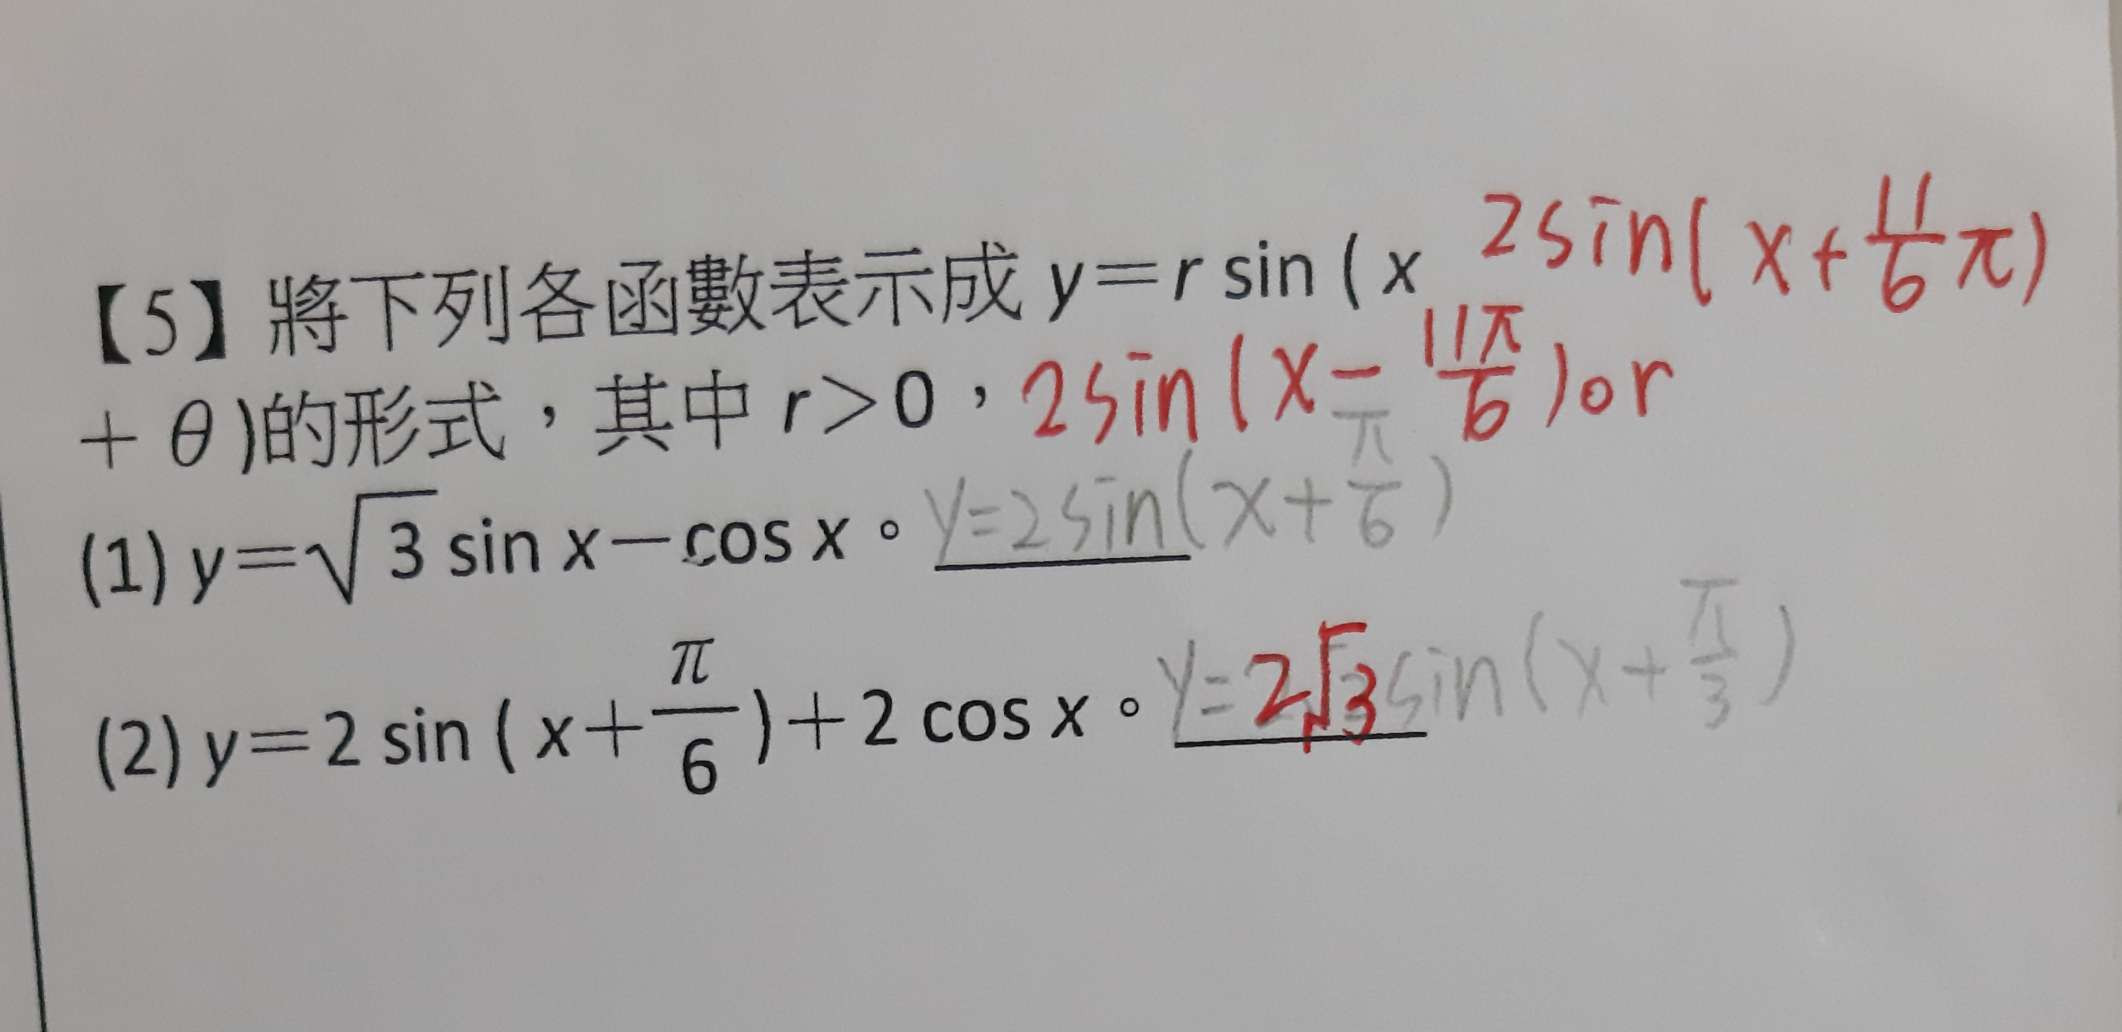 【5】將下列各函數表示成 y=r sin ( x 2sin(x+11/6 π)
+ θ )的形式，其中 r>0， 2sin(x-11π/6)or
(1) y=√3 sin x-cos x。y=2sin(x+π/6)
(2) y=2 sin ( x+π/6 )+2 cos x。y=2√3sin(x+π/3)